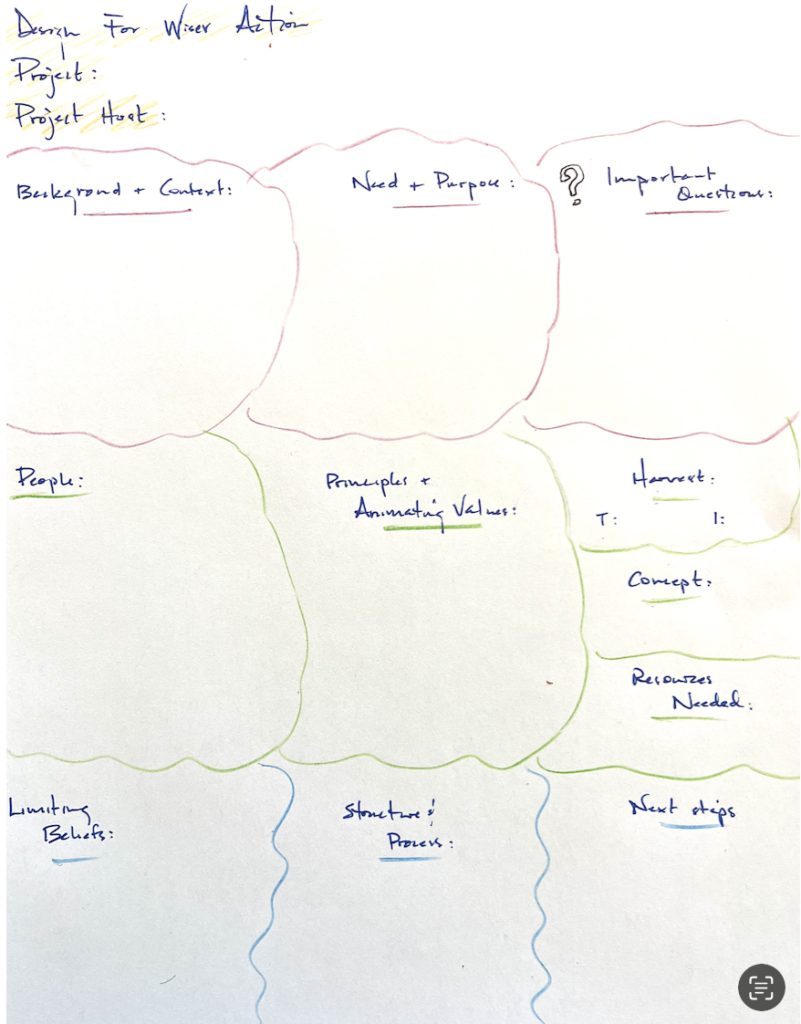 Design For Wiser Action
Project:
Project Host:
Background + Context:
Need + Purpose:
? Important
Questions:
People:
Principles +
Animating Values:
Harvest:
T: I:
Concept:
Resources
Needed:
Limiting
Beliefs:
Structure &
Process:
Next steps